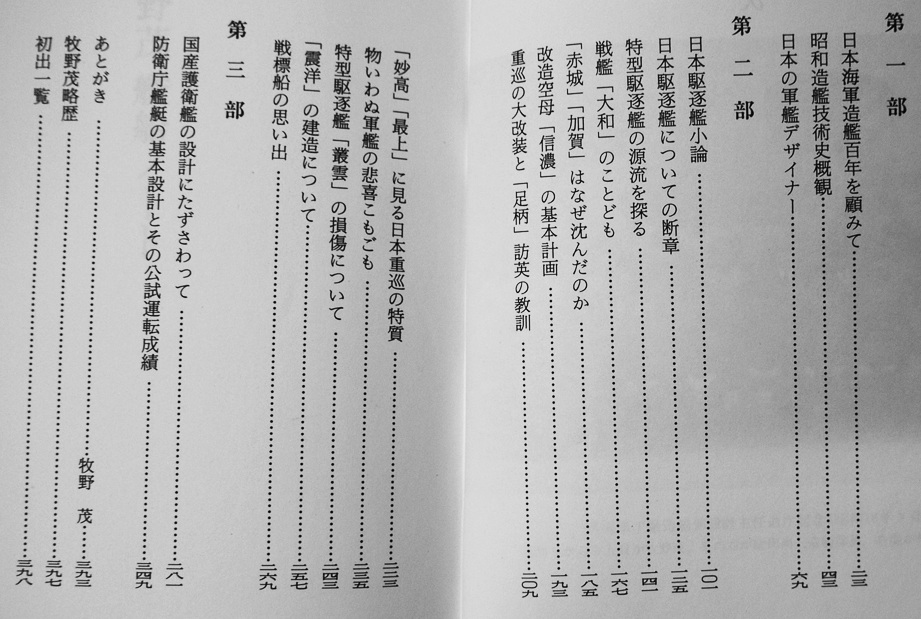 第一部
日本海軍造艦百年を顧みて……二三
昭和造艦技術史概観……四三
日本の軍艦デザイナー……六九
第二部
日本駆逐艦小論……一〇一
日本駆逐艦についての断章……一二五
特型駆逐艦の源流を探る……一四一
戦艦「大和」のことども……一六七
「赤城」「加賀」はなぜ沈んだのか……一八五
改造空母「信濃」の基本計画……一九三
重巡の大改装と「足柄」訪英の教訓……二〇九
「妙高」「最上」に見る日本重巡の特質……二二三
物いわぬ軍艦の悲喜こもごも……二三五
特型駆逐艦「叢雲」の損傷について……二四三
「震洋」の建造について……二五七
戦標船の思い出……二六九
第三部
国産護衛艦の設計にたずさわって……二八一
防衛庁艦艇の基本設計とその公試運転成績……三四九
あとがき……牧野 茂……三九三
牧野茂略歴……三九七
初出一覧……三九八